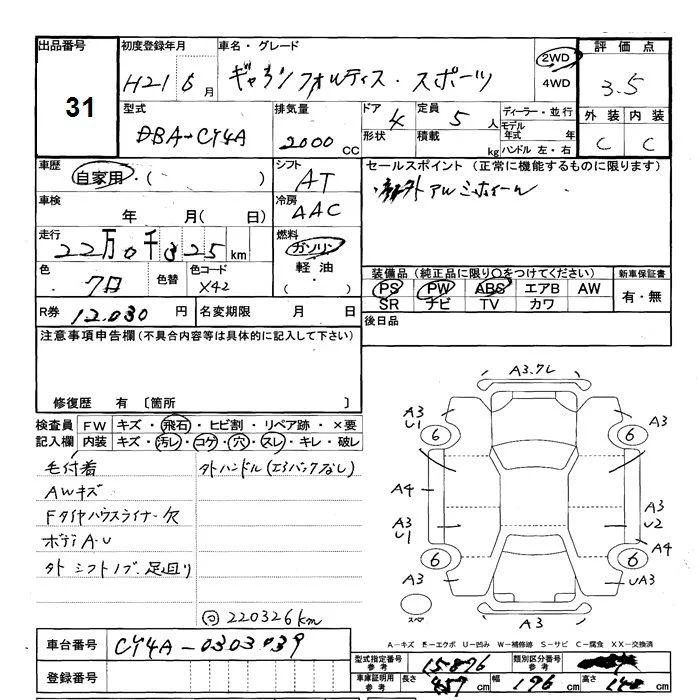 出品番号
31
初度登録年月
H21 6月
車名・グレード
ギャランフォルティス・スポーツ
2WD
4WD
評価点
3.5
外装 内装
C C
型式
DBA-CY4A
排気量
2000 CC
ドア 4
形状
定員 5 人
積載 kg
ディーラー・並行
モデル年式 年
ハンドル 左・右
車歴
自家用・( )
シフト
AT
セールスポイント (正常に機能するものに限ります)
社外アルミホイール
車検
年 月( 日)
冷房
AAC
走行
22万0千325km
燃料
ガソリン
軽油
・
色
クロ
色替
色コード
X42
装備品(純正品に限り○をつけてください)
新車保証書
PS PW ABS エアB AW
有・無
SR ナビ TV カワ
R券 12,030円
名変期限 月 日
後日品
注意事項申告欄(不具合内容等は具体的に記入して下さい)
修復歴 有〔箇所 〕
検査員記入欄
FW キズ・飛石・ヒビ割・リペア跡・×要
内装 キズ・汚レ・コゲ・穴・スレ・キレ・破レ
毛付着
外ハンドル(エアバックなし)
AWキズ
Fタイヤハウスライナー欠
ボディA・U
外シフトノブ、足回り
220326km
A3.フレ
A3
U1
6
6
A3
A4
A3
U1
A3
U2
A4
6
6
A3
UA3
スペア
A3
A-キズ E-エクボ U-凹み W-補修跡 S-サビ C-腐食 XX-交換済
車台番号
CY4A-0303039
登録番号
型式指定番号
参考
15896
類別区分番号
参考
車庫証明用
参考
長さ 457cm
幅 176cm
高さ 148cm